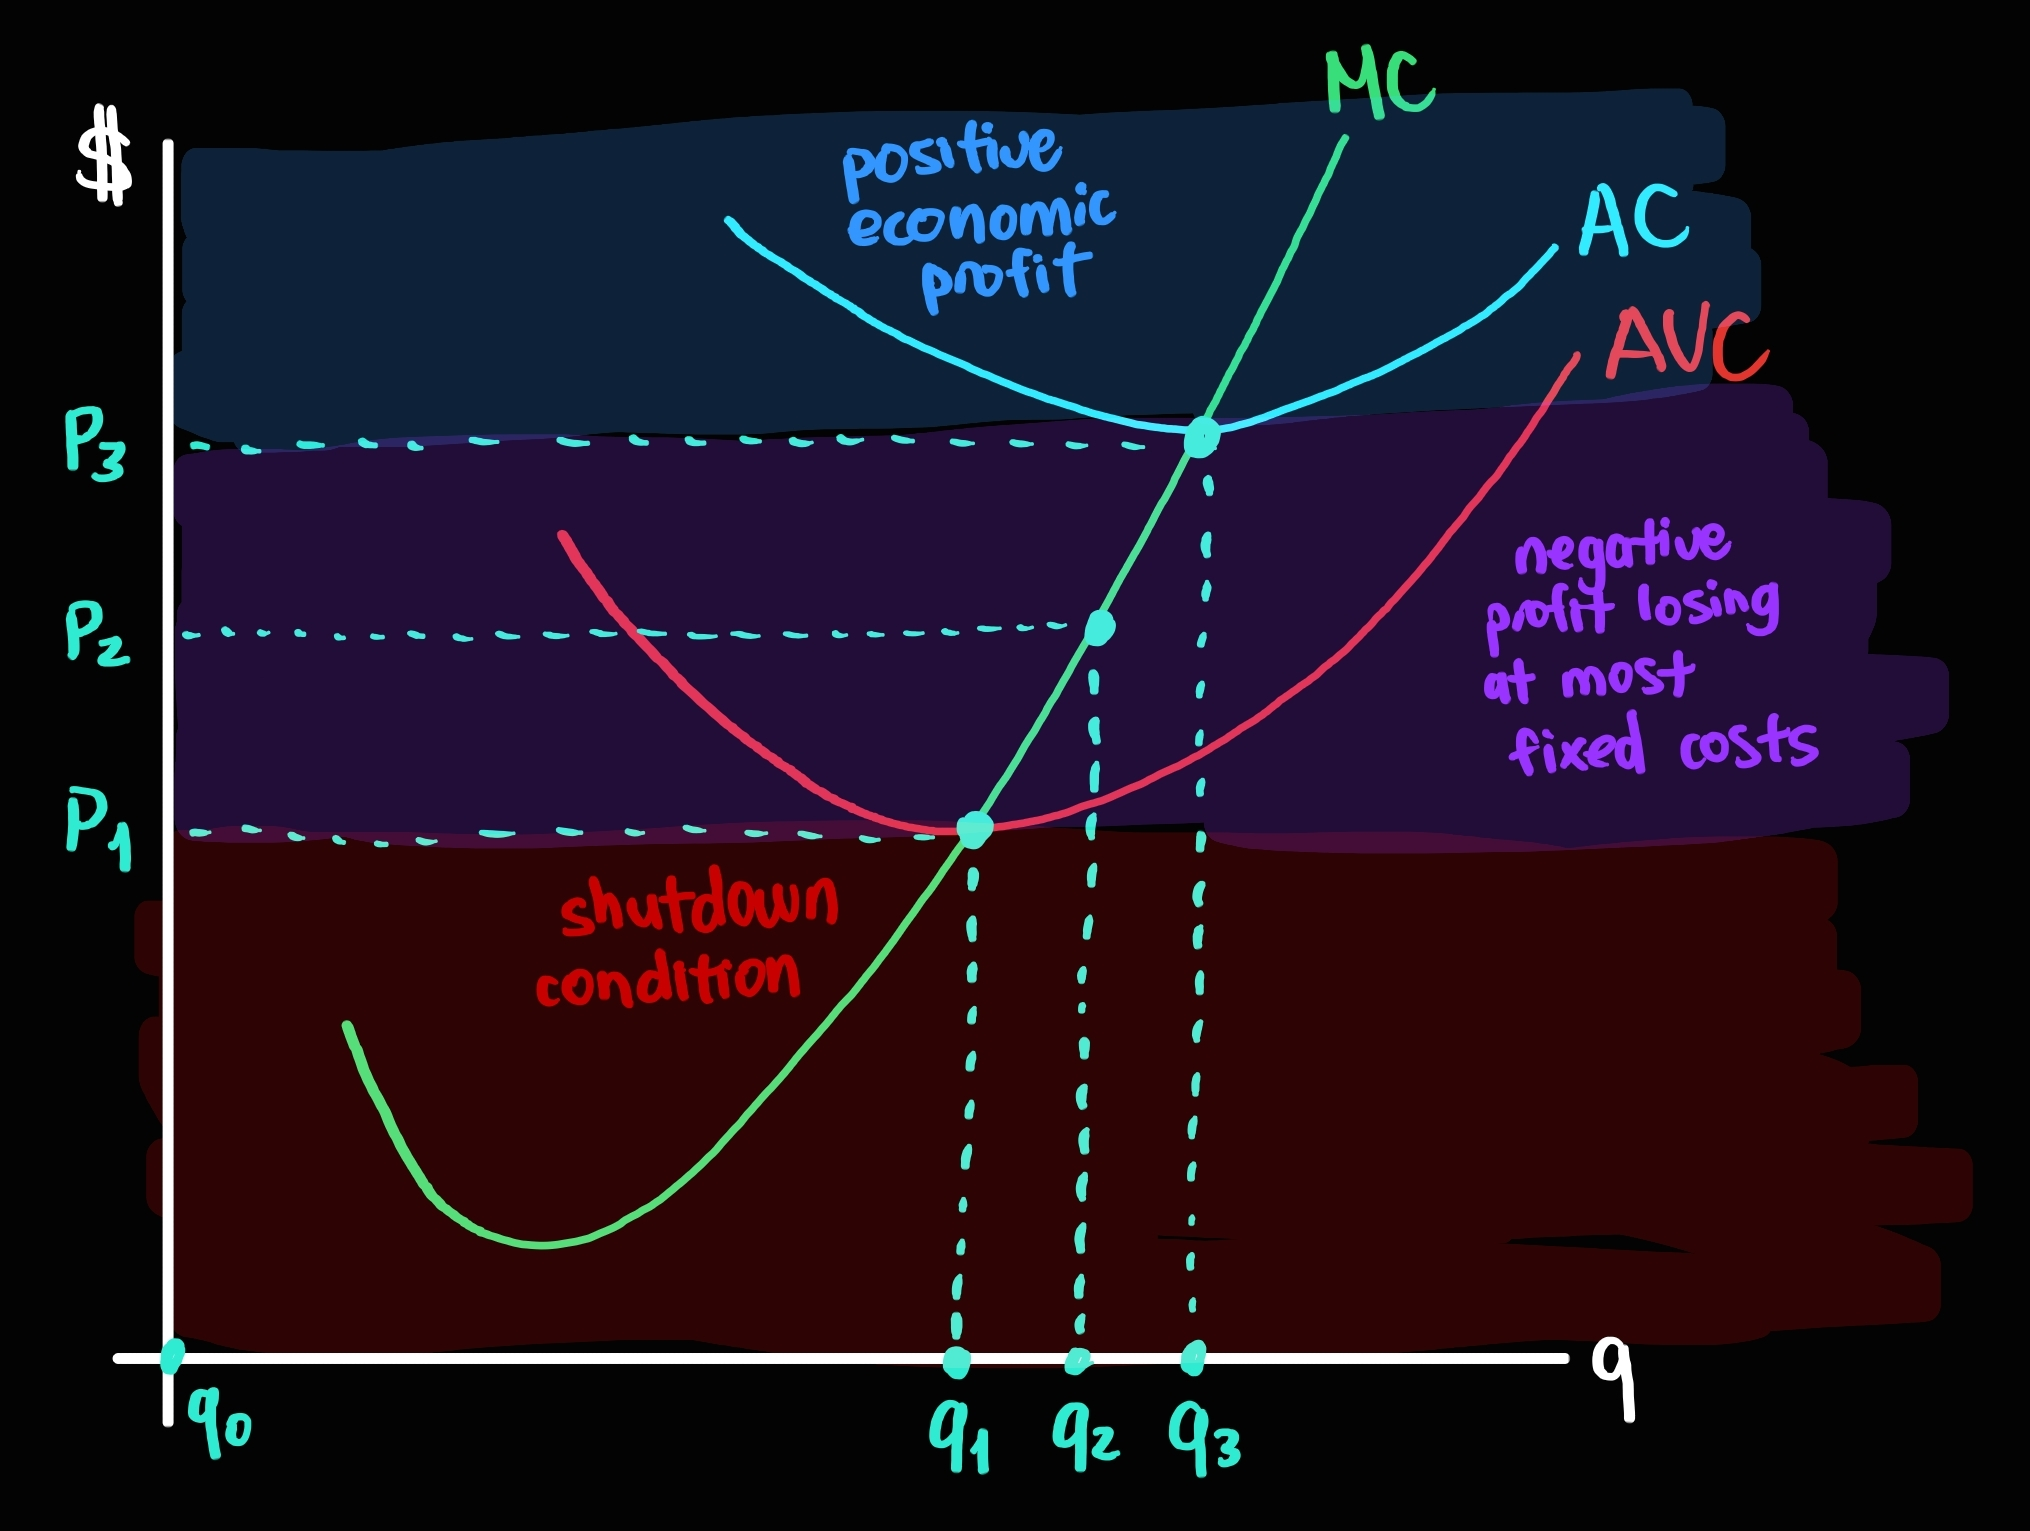 $
MC
positive
economic
profit
AC
AVC
P3
negative
profit losing
at most
fixed costs
P2
P1
shutdown
condition
q
q0
q1
q2
q3